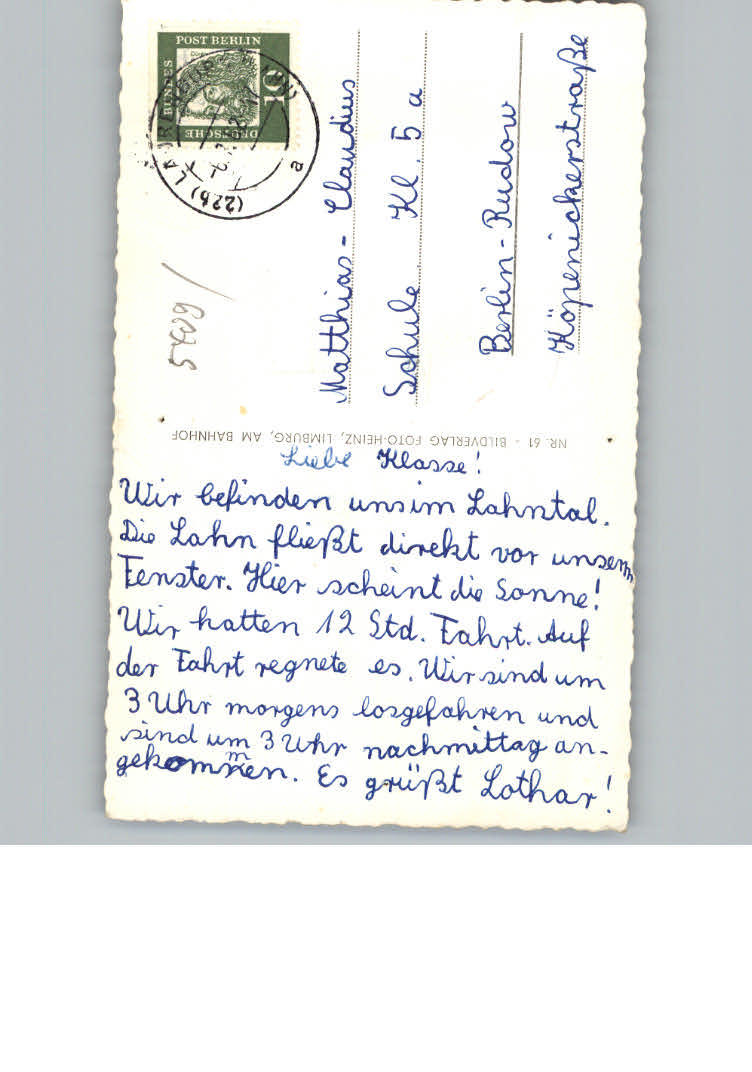 Liebe Klasse!
Wir befinden uns im Lahntal.
Die Lahn fließt direkt vor unserm
Fenster. Hier scheint die Sonne!
Wir hatten 12 Std. Fahrt. Auf
der Fahrt regnete es. Wir sind um
3 Uhr morgens losgefahren und
sind um 3 Uhr nachmittag an-
gekommen. Es grüßt Lothar!
Matthias-Claudius
Schule Kl. 5a
Berlin-Rudow
Köpenickerstraße
NR. 61 - BILDVERLAG FOTO-HEINZ, LIMBURG, AM BAHNHOF
DEUTSCHE BUNDES POST BERLIN
10
(22b)
a
5409/